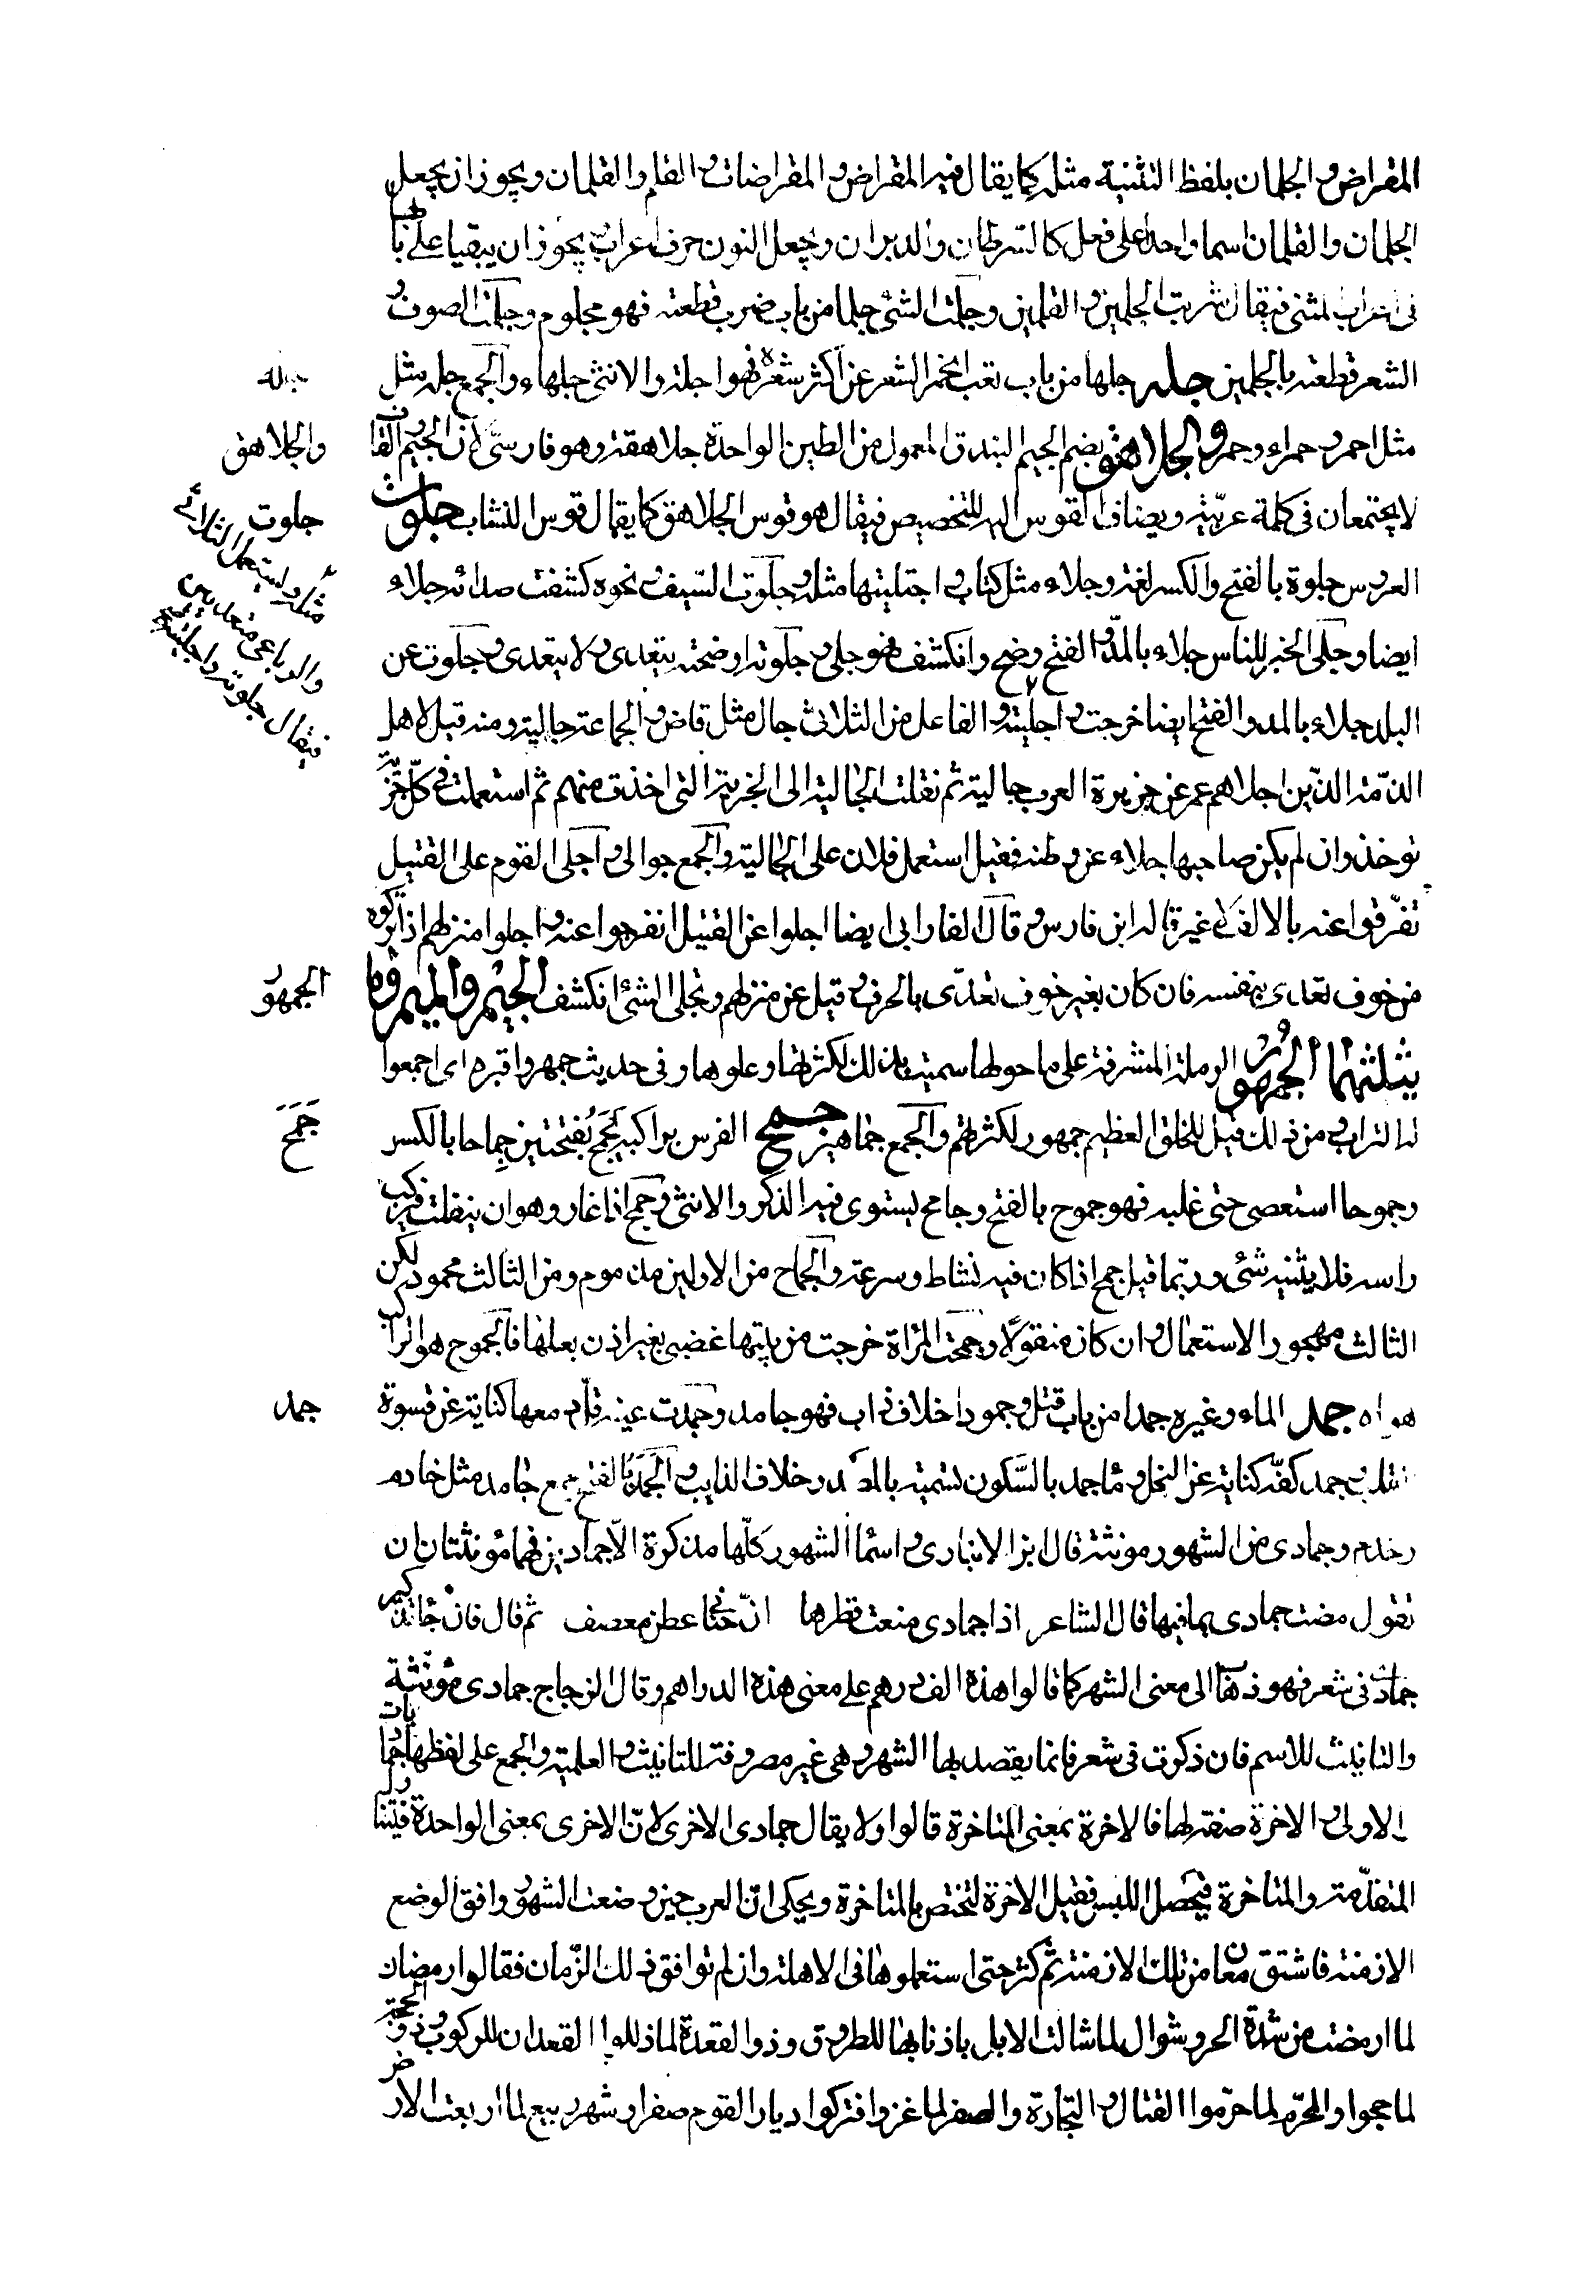 المقراض والجلمان بلفظ التثنية مثله كما يقال فيه المقراض والمقراضان والقلم والقلمان ويجوز ان يجعل
الجلمان والقلمان اسما واحدا على فعل كالسرطان والدبران ويجعل النون حرف اعراب ويجوز ان يبقيا على بابهما
فى اعراب المثنى فيقال شريت الجلمين والقلمين وجلمت الشئ جلما من باب ضرب قطعته فهو مجلوم وجلمت الصوف و
الشعر قطعته بالجلمين جله جلها من باب تعب انحسر الشعر عن اكثر شعره فهو اجله والانثى جلهاء والجمع جله مثل
جله
مثل احمر وحمراء وحمر والجلاهق بضم الجيم البندق المعمول من الطين الواحدة جلاهقة وهو فارسىّ لانّ الجيم والقاف
والجلاهق
لا يجتمعان فى كلمة عربيّة ويضاف القوس اليه للتخصيص فيقال هو قوس الجلاهق كما يقال قوس النشاب جلوت
جلوت
العروس جلوة بالفتح والكسر لغة وجلاء مثل كتاب واجتليتها مثله وجلوت السّيف ونحوه كشفت صدائه جلاء
ايضا وجلى الخبر للناس جلاء بالمدّ والفتح وضح وانكشف فهو جلى وجلوته اوضحته يتعدى ولا يتعدى وجلوت عن
البلد جلاء بالمد والفتح ايضا خرجت واجليته والفاعل من الثلاثى جال مثل قاض والجماعة جالية ومنه قيل لاهل
مثله ويستعمل الثلاثى
والرباعى متعديين
فيقال جلوته واجليته
الذمّة الذّين اجلاهم عمر عن جزيرة العرب جالية ثم نقلت الجالية الى الجزية التى اخذت منهم ثم استعملت فى كلّ جزية
توخذ وان لم يكن صاحبها جلاء عن وطنه فقيل استعمل فلان على الجالية والجمع جوالى واجلى القوم على القتيل
تفرّقوا عنه بالالف لا غير قاله ابن فارس وقال الفارابى ايضا اجلوا عن القتيل انفرجوا عنه واجلوا منزلهم اذا تركوه
من خوف تعدى بنفسه فان كان بغير خوف تعدّى بالحرف وقيل عن منزلهم وتجلى الشئ انكشف الجيم والميم وما
الجمهور
يثلثهما الجمهور الرملة المشرفة على ما حولها سميت بذلك لكثرتها وعلوها وفى حديث جمهروا قبره اى اجمعوا
له التراب ومن ذلك قيل للخلق العظيم جمهور لكثرتهم والجمع جماهير جمح الفرس براكبه يجمح بفتحتين جماحا بالكسر
جَمَحَ
وجموحا استعصى حتى غلبه فهو جموح بالفتح وجامح يستوى فيه الذكر والانثى وجمح اذا غار وهو ان ينفلت فيركب
راسه فلا يثنيه شئ وربّما قيل جمح اذا كان فيه نشاط وسرعة والجماح من الاولين مذموم ومن الثالث محمود لكن
الثالث مهجور الاستعمال وان كان منقولًا وجمحت المرأة خرجت من بيتها غضبى بغير اذن بعلها فالجموح هو الراكب
هواه جمد الماء وغيره جمدا من باب قتل وجمودا خلاف ذاب فهو جامد وجمدت عينه قلّ دمعها كناية عن قسوة
جمد
القلب وجمد كفّه كناية عن البخل وماء جمد بالسّكون تسمية بالمصدر خلاف الذايب والجمد بالفتح جمع جامد مثل خادم
وخدم وجمادى من الشهور مونثة قال ابن الانبارى واسماء الشهور كلّها مذكرة الّا جماديين فهما مؤنثتان ان
تقول مضت جمادى بما فيها قال الشاعر اذا جمادى منعت قطرها انّ جنابى عطن معصف ثم قال فان جاء تذكير
جمادى فى شعر فهو ذهابا الى معنى الشهر كما قالوا هذه الف درهم على معنى هذه الدراهم وقال الزجاج جمادى مؤنثة
والتانيث للاسم فان ذكرت فى شعر فانما يقصد بها الشهر وهى غير مصروفة للتانيث والعلمية والجمع على لفظها جماديات
والاولى والاخرة صفة لها فالاخرة بمعنى المتاخرة قالوا ولا يقال جمادى الاخرى لانّ الاخرى بمعنى الواحدة فتتناول
المتقدّمة والمتاخرة فيحصل اللبس فقيل الاخرة لتختص بالمتاخرة ويحكى انّ العرب حين وضعت الشهور وافق الوضع
الازمنة فاشتق معان من تلك الازمنة ثم كثر حتى استعملوها فى الاهلة وان لم توافق ذلك الزّمان فقالوا رمضان
لما ارمضت من شدّة الحر وشوال لما شالت الابل باذنابها للطروق وذو القعدة لما ذللوا القعدان للركوب وذو الحجة
لما حجوا والمحرّم لما حرّموا القتال والتجارة والصفر لما غزوا فتركوا ديار القوم صفرا وشهر ربيع لما اربعت الارض